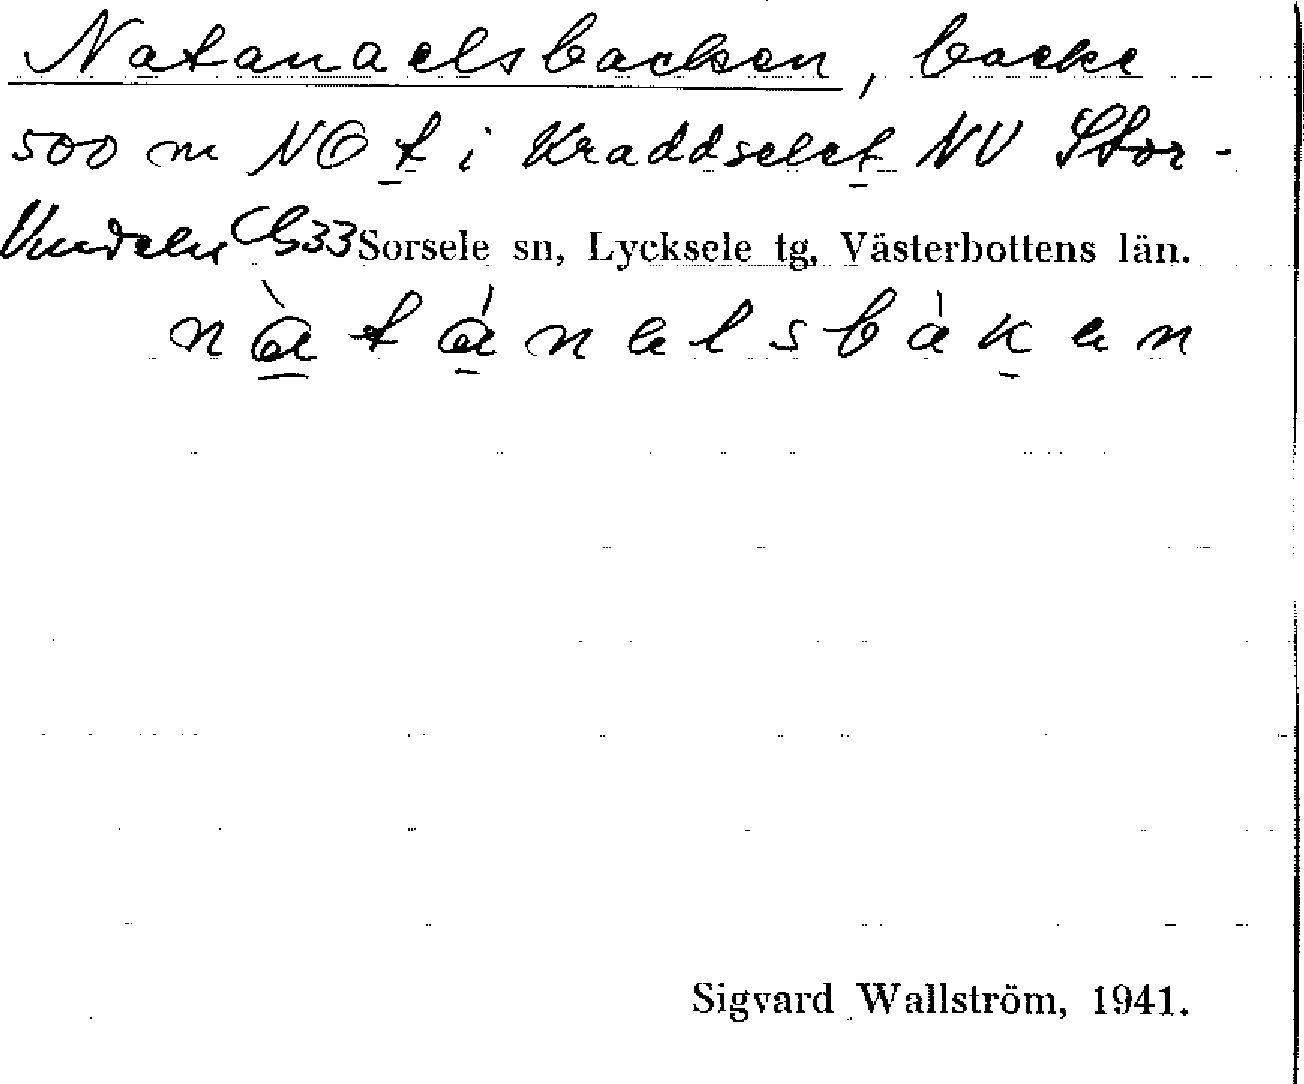 Natanaelsbacken, backe
500 m NO t i Kraddselet NV Stor-
Vindeln G33 Sorsele sn, Lycksele tg, Västerbottens län.
nàtánelsbàken
Sigvard Wallström, 1941.